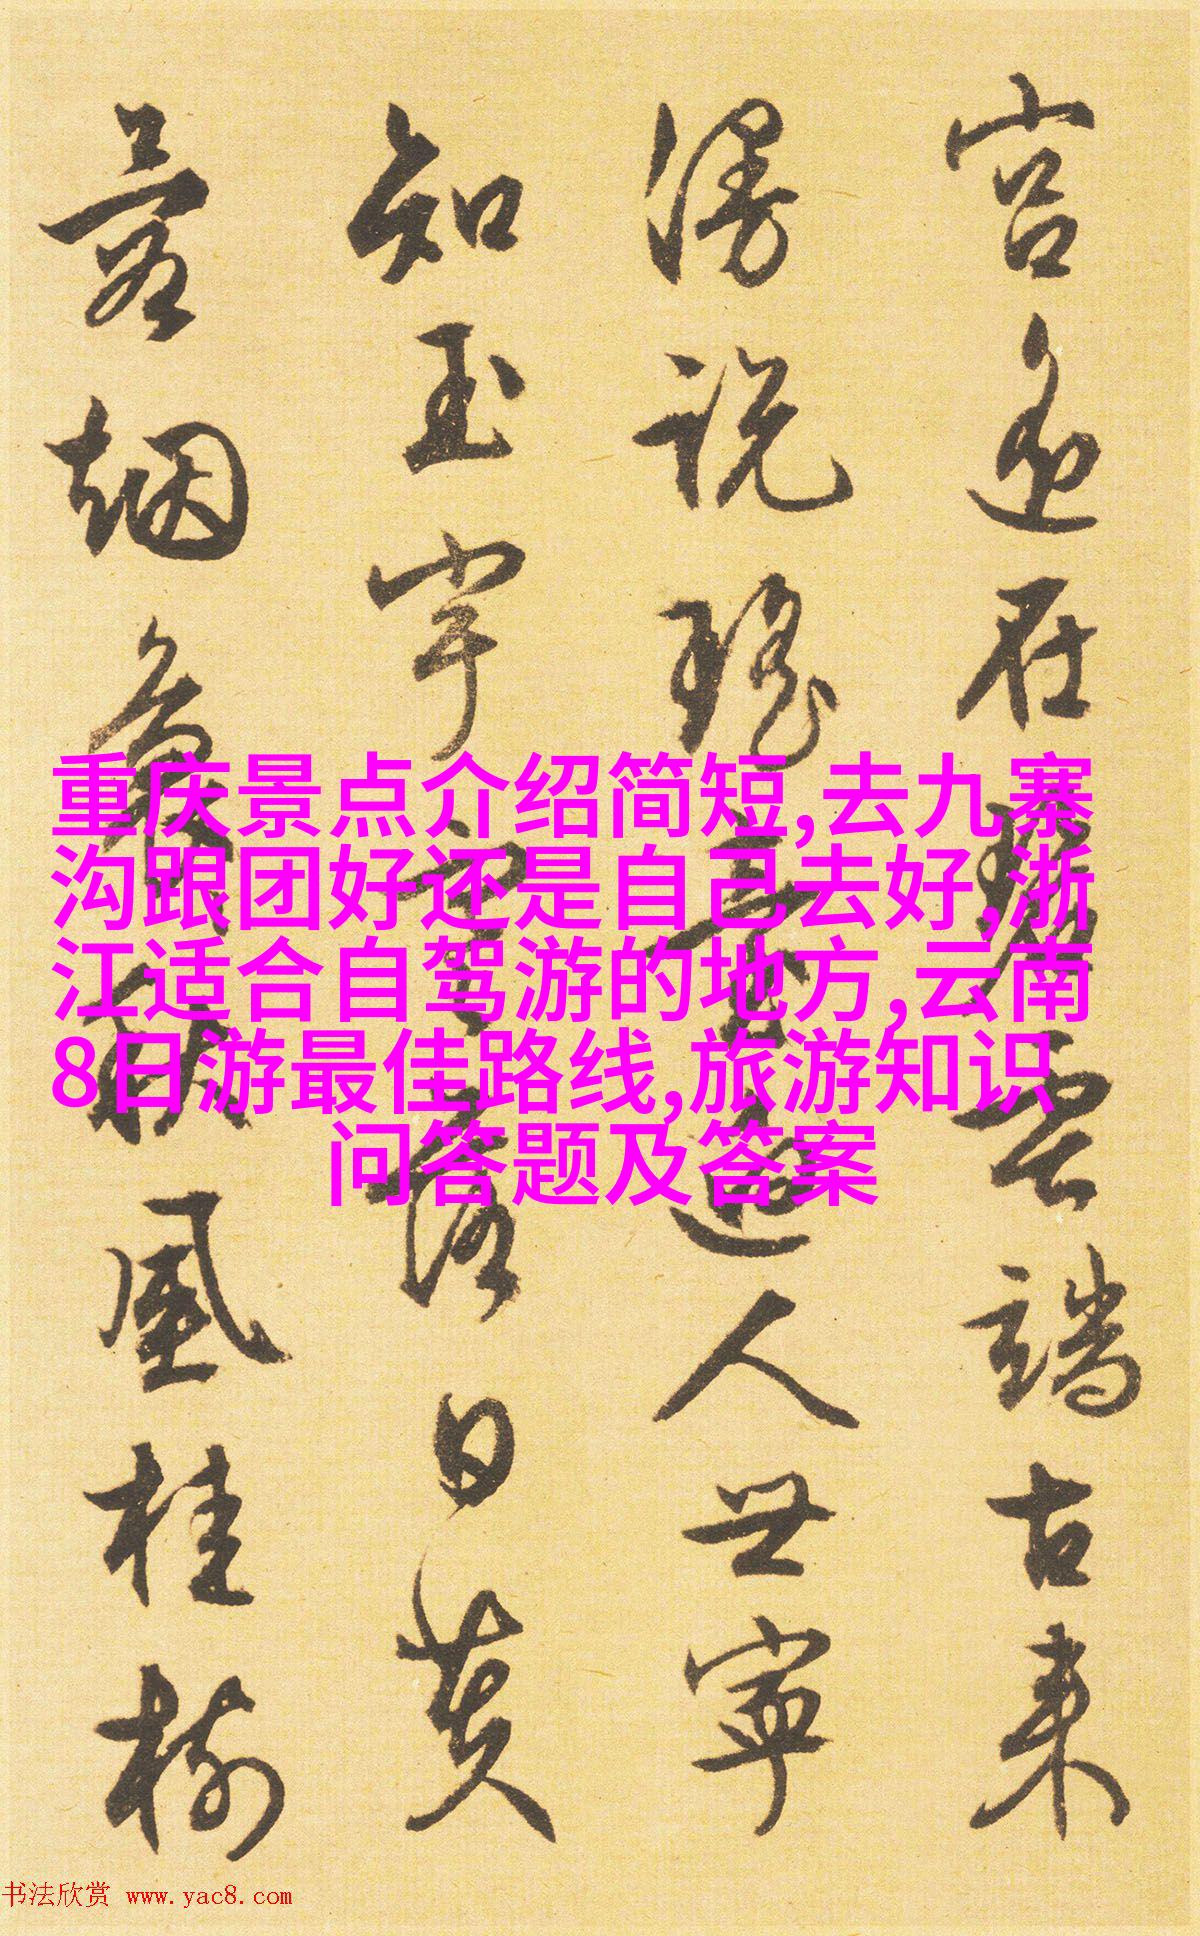 宫在碧雲端古来
漫説瑶人世寧
知玉宇寒落日黄
烟秋風桂樹
重庆景点介绍简短,去九寨
沟跟团好还是自己去好,浙
江适合自驾游的地方,云南
8日游最佳路线,旅游知识
问答题及答案
书法欣赏 www.yac8.com